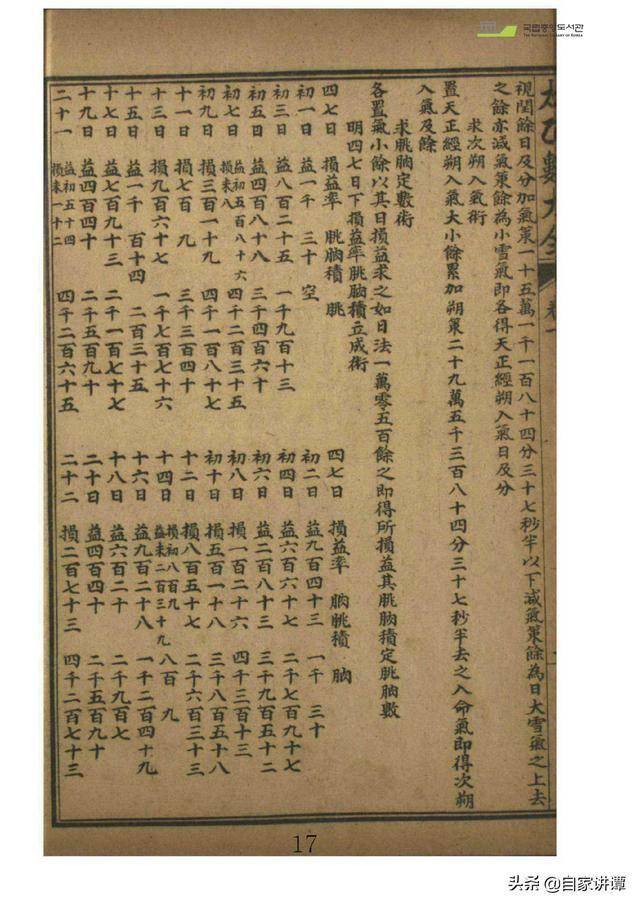 国립중앙도서관
THE NATIONAL LIBRARY OF KOREA
太乙數大全 卷一
視閏餘日及分加氣策一十五萬一千一百八十四分三十七秒半以下減氣策餘為日大雪氣之上去
之餘亦減氣策餘為小雪氣即各得天正經朔入氣日及分
求次朔入氣術
置天正經朔入氣大小餘累加朔策二十九萬五千三百八十四分三十七秒半去之入命氣即得次朔
入氣及餘
求朓朒定數術
各置氣小餘以其日損益求之如日法一萬零五百餘之即得所損益其朓朒積定朓朒數
明四七日下損益率朓朒積立成術
四七日 損益率 朓朒積 朓 四七日 損益率 朒朓積 朒
初一日 益一千 三十 空 初二日 益九百四十三 一千 三十
初三日 益八百二十五 一千九百十三 初四日 益六百六十七 二千七百九十七
初五日 益四百八十八 三千四百六十 初六日 益二百八十三 三千九百五十二
初七日 益初五百八十六 損末八 四千二百三十五 初八日 損一百二十六 四千三百十三
初九日 損三百一十九 四千一百八十七 初十日 損五百一十八 三千八百五十八
十一日 損七百 九 三千三百四十 十二日 損八百五十七 二千六百三十三
十三日 損九百六十七 一千七百七十六 十四日 損初八百九 益末二百三十九 八百 九
十五日 益一千 百十四 二百三十五 十六日 益九百二十八 一千二百四十九
十七日 益七百九十三 二千一百七十七 十八日 益六百二十 二千九百七
十九日 益四百四十 二千五百九十 二十日 益四百四十 二千五百九十
二十一 益初五十四 損末一十二 四千二百六十五 二十二 損二百七十三 四千二百七十三
17
头条 @自家讲谭